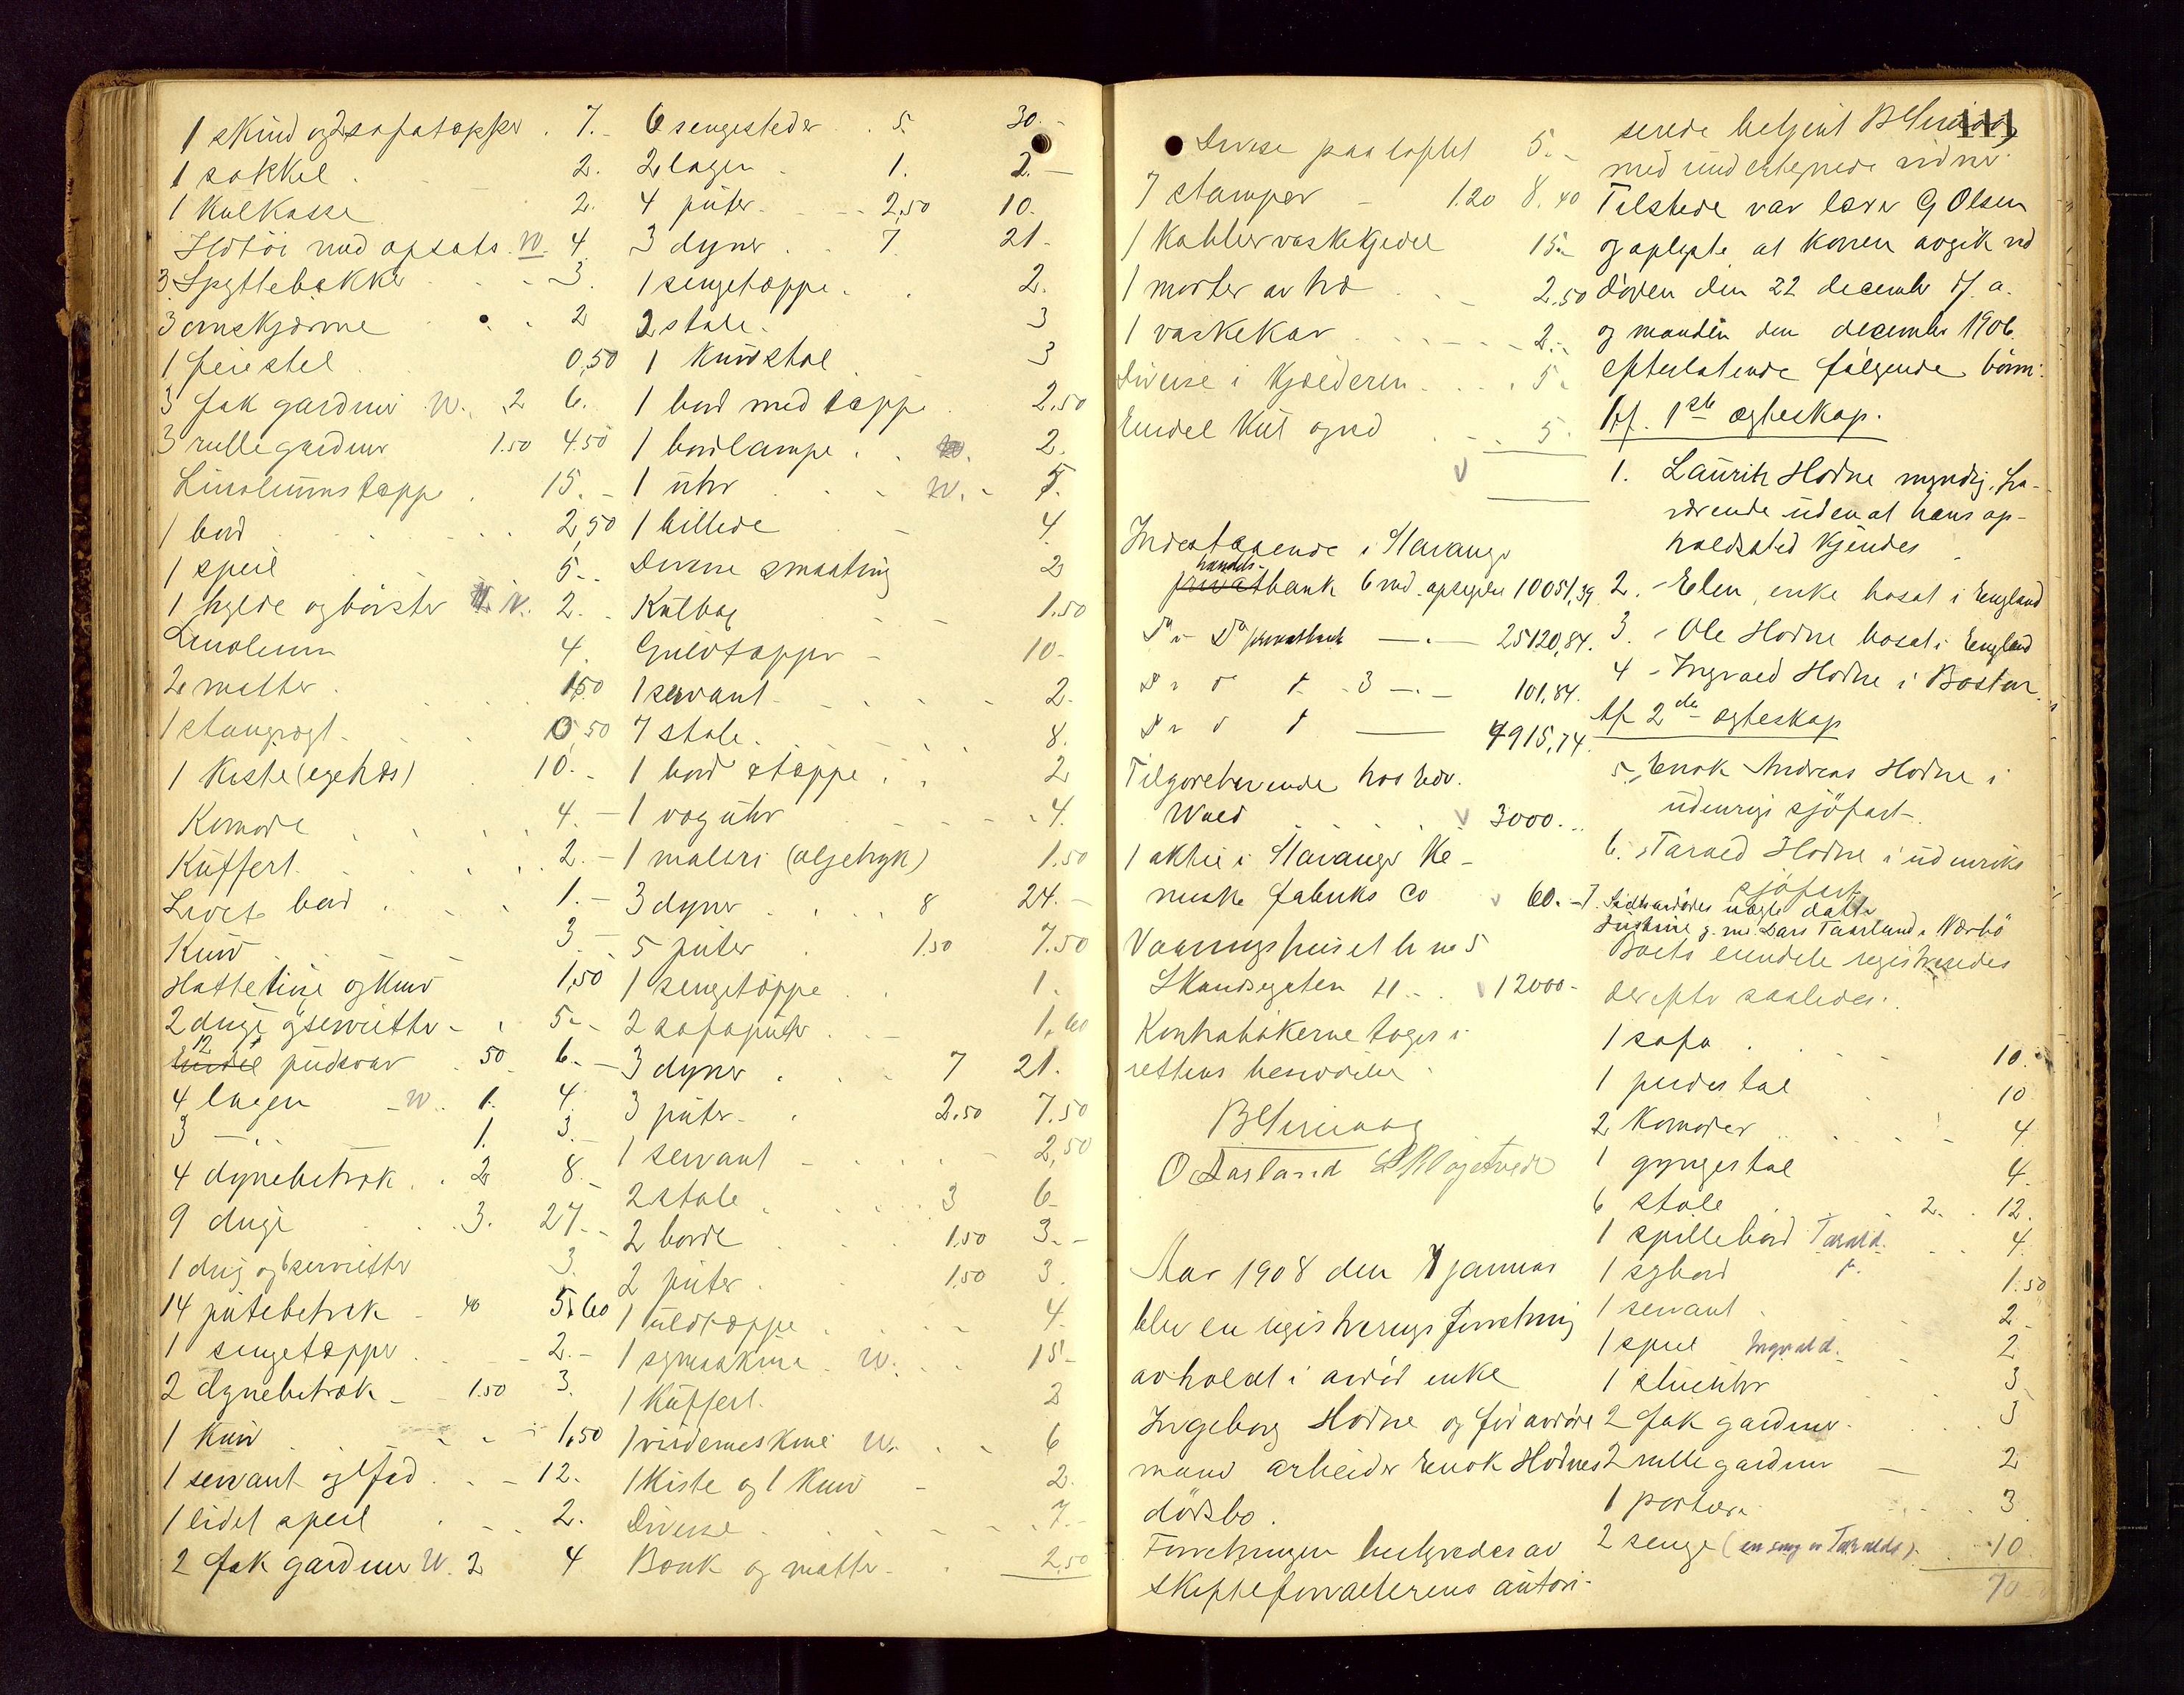 1 skind og 2 sofatæpper . 7.-
1 sokkel . 2.
1 Kulkasse 2.
Ildtöi med opsats. W. 4.
3 Spyttebakker 3.
3 ovnskjærme 2
1 feiestel 0,50
3 fak gardiner W. 2 6.
3 rullegardiner 1.50 4.50
Linoliumstæppe . 15.-
1 bord 2,50
1 speil 5.-
1 hylde og börster W. 2.-
Linoleum 4.
2 matter . 1,50
1 stangvægt . 0,50
1 Kiste (egetræs) . 10.-
Komode 4.-
Kuffert . 2.-
Lidet bord . 1.-
Kurv 3.-
Hattetine og Kurv 1,50
2 duge og servietter - 5.-
12 pudevar . 50 6.-
4 lagen W. 1. 4.
3 -"- 1. 3.-
4 dynebetræk . 2 8.-
9 duge 3. 27.-
1 dug og 6 servietter 3.
14 putebetræk 40 5.60
1 sengetæppe 2.-
2 dynebetræk 1.50 3.
1 Kurv 1,50
1 servant og 1 fad . 12.
1 lidet speil . 2.
2 fak gardiner W. 2 4
6 sengesteder . 5. 30.-
2 lagen . 1. 2.-
4 puter . 2,50 10.
3 dyner . 7. 21.-
1 sengetæppe . 2.
2 stole . 3
1 Kurvstol 3
1 bord med tæppe . 2.50
1 bordlampe . 2.
1 uhr W. 5.
1 billede 4.
Diverse smaating 2
Kulbox 1.50
Gulvtæpper - 10-
1 servant . 2.
7 stole . 8.
1 bord & tæppe . 2
1 væguhr 4.
1 maleri (oljetryk) 1.50
3 dyner . 8 24.-
5 puter . 1.50 7.50
1 sengetæppe . 1.
2 sofaputer 1.60
3 dyner . 7 21.
3 puter . 2.50 7.50
1 servant 2,50
2 stole . 3 6-
2 borde 1,50 3.-
2 puter . 1,50 3.
1 uldtæppe . 4.
1 symaskine . W. 15-
1 Kuffert . 2
1 vridemaskine W. 6
1 Kiste og 1 Kurv 2.
Diverse . 7.-
Bænk og matter . 2,50
Diverse paa loftet 5.-
7 stamper - 1.20 8.40
1 Kobbervaskekjedel 15.-
1 morter av træ 2.50
1 vaskekar 2.-
Diverse i Kjælderen . 5.-
Endel Kul og ved 5.
Indestaaende i Stavanger
handels-
privatbank 6 md. opsigelse 10051,39
Do " Do privatbank -"- 25120,84.
Do " " 3 -"- 101,84.
Do " " 4915,74.
Tilgodehavende hos Edv.
Wald 3000.-
1 aktie i Stavanger Ke-
miske fabriks Co 60.-
Vaaningshuset h no 5
Skandsegaten 11 12000-
Kontrabøkerne toges i
rettens besiddelse.
B Grimaas
O Aarland
Aar 1908 den 7 januar
blev en registreringsforretning
avholdt i avdöd enke
Ingeborg Hodne og för avdöde
mand arbeider Enok Hodnes
dödsbo.
Forretningen betjentes av
skifteforvalterens autori-
111
serede betjent B Grimaas
med undertegnede vidner.
Tilstede var lærer G Olsen
og oplyste at konen avgik ved
döden den 22 december f. a.
og manden den december 1906.
efterlatende fölgende börn:
Af 1ste ægteskap.
1. Lauritz Hodne myndig, fra-
værende uden at hans op-
holdsted Kjendes
2. - Elen, enke bosat i England
3. - Ole Hodne bosat i England
4 - Ingvald Hodne i Boston.
Af 2det ægteskap
5. Enok Andreas Hodne i
udenrigs sjöfart -
6. Tarald Hodne i udenriks
sjöfart
7. Sidstavdödes uægte datter
g. m. Lars Taarland, Nærbö
Boets eiendele registreredes
derefter saaledes:
1 sofa . 10.
1 pudestol 10
2 Komoder 4
1 gyngestol 4.
6 stole 2. 12.
1 spillebord Tarald. 4.
1 sybord 1.50
1 servant 2-
1 speil Ingvald. 2.
1 stueuhr 3
2 fak gardiner 3
2 rullegardiner - 2
1 portiere 3
2 senge (en seng er Taralds) 10.
70